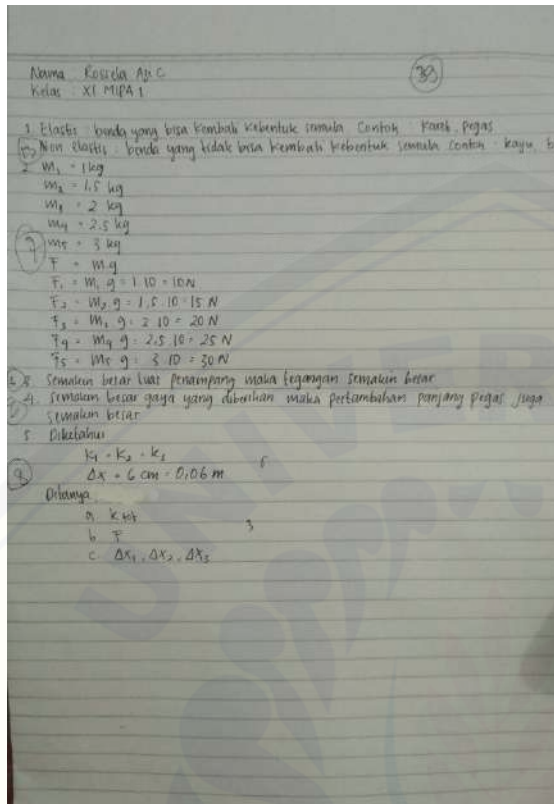 Nama : Rossela Ayu C
Kelas : XI MIPA 1
39
1. Elastis : benda yang bisa kembali kebentuk semula Contoh : Karet, pegas
Non elastis : benda yang tidak bisa kembali kebentuk semula contoh : kayu
2. m₁ = 1 kg
m₂ = 1,5 kg
m₃ = 2 kg
m₄ = 2,5 kg
m₅ = 3 kg
F = m.g
F₁ = m₁ g = 1.10 = 10 N
F₂ = m₂ g = 1,5.10 = 15 N
F₃ = m₃ g = 2.10 = 20 N
F4 = m4 g = 2,5.10 = 25 N
F5 = m5 g = 3.10 = 30 N
3. Semakin besar luas penampang maka tegangan semakin besar
4. Semakin besar gaya yang diberikan maka pertambahan panjang pegas juga
semakin besar
5. Diketahui
K₁ = K₂ = K₃
Δx = 6 cm = 0,06 m
8
Ditanya
a. k tot
3
b. F
c. Δx₁, Δx₂, Δx₃
UNIVER